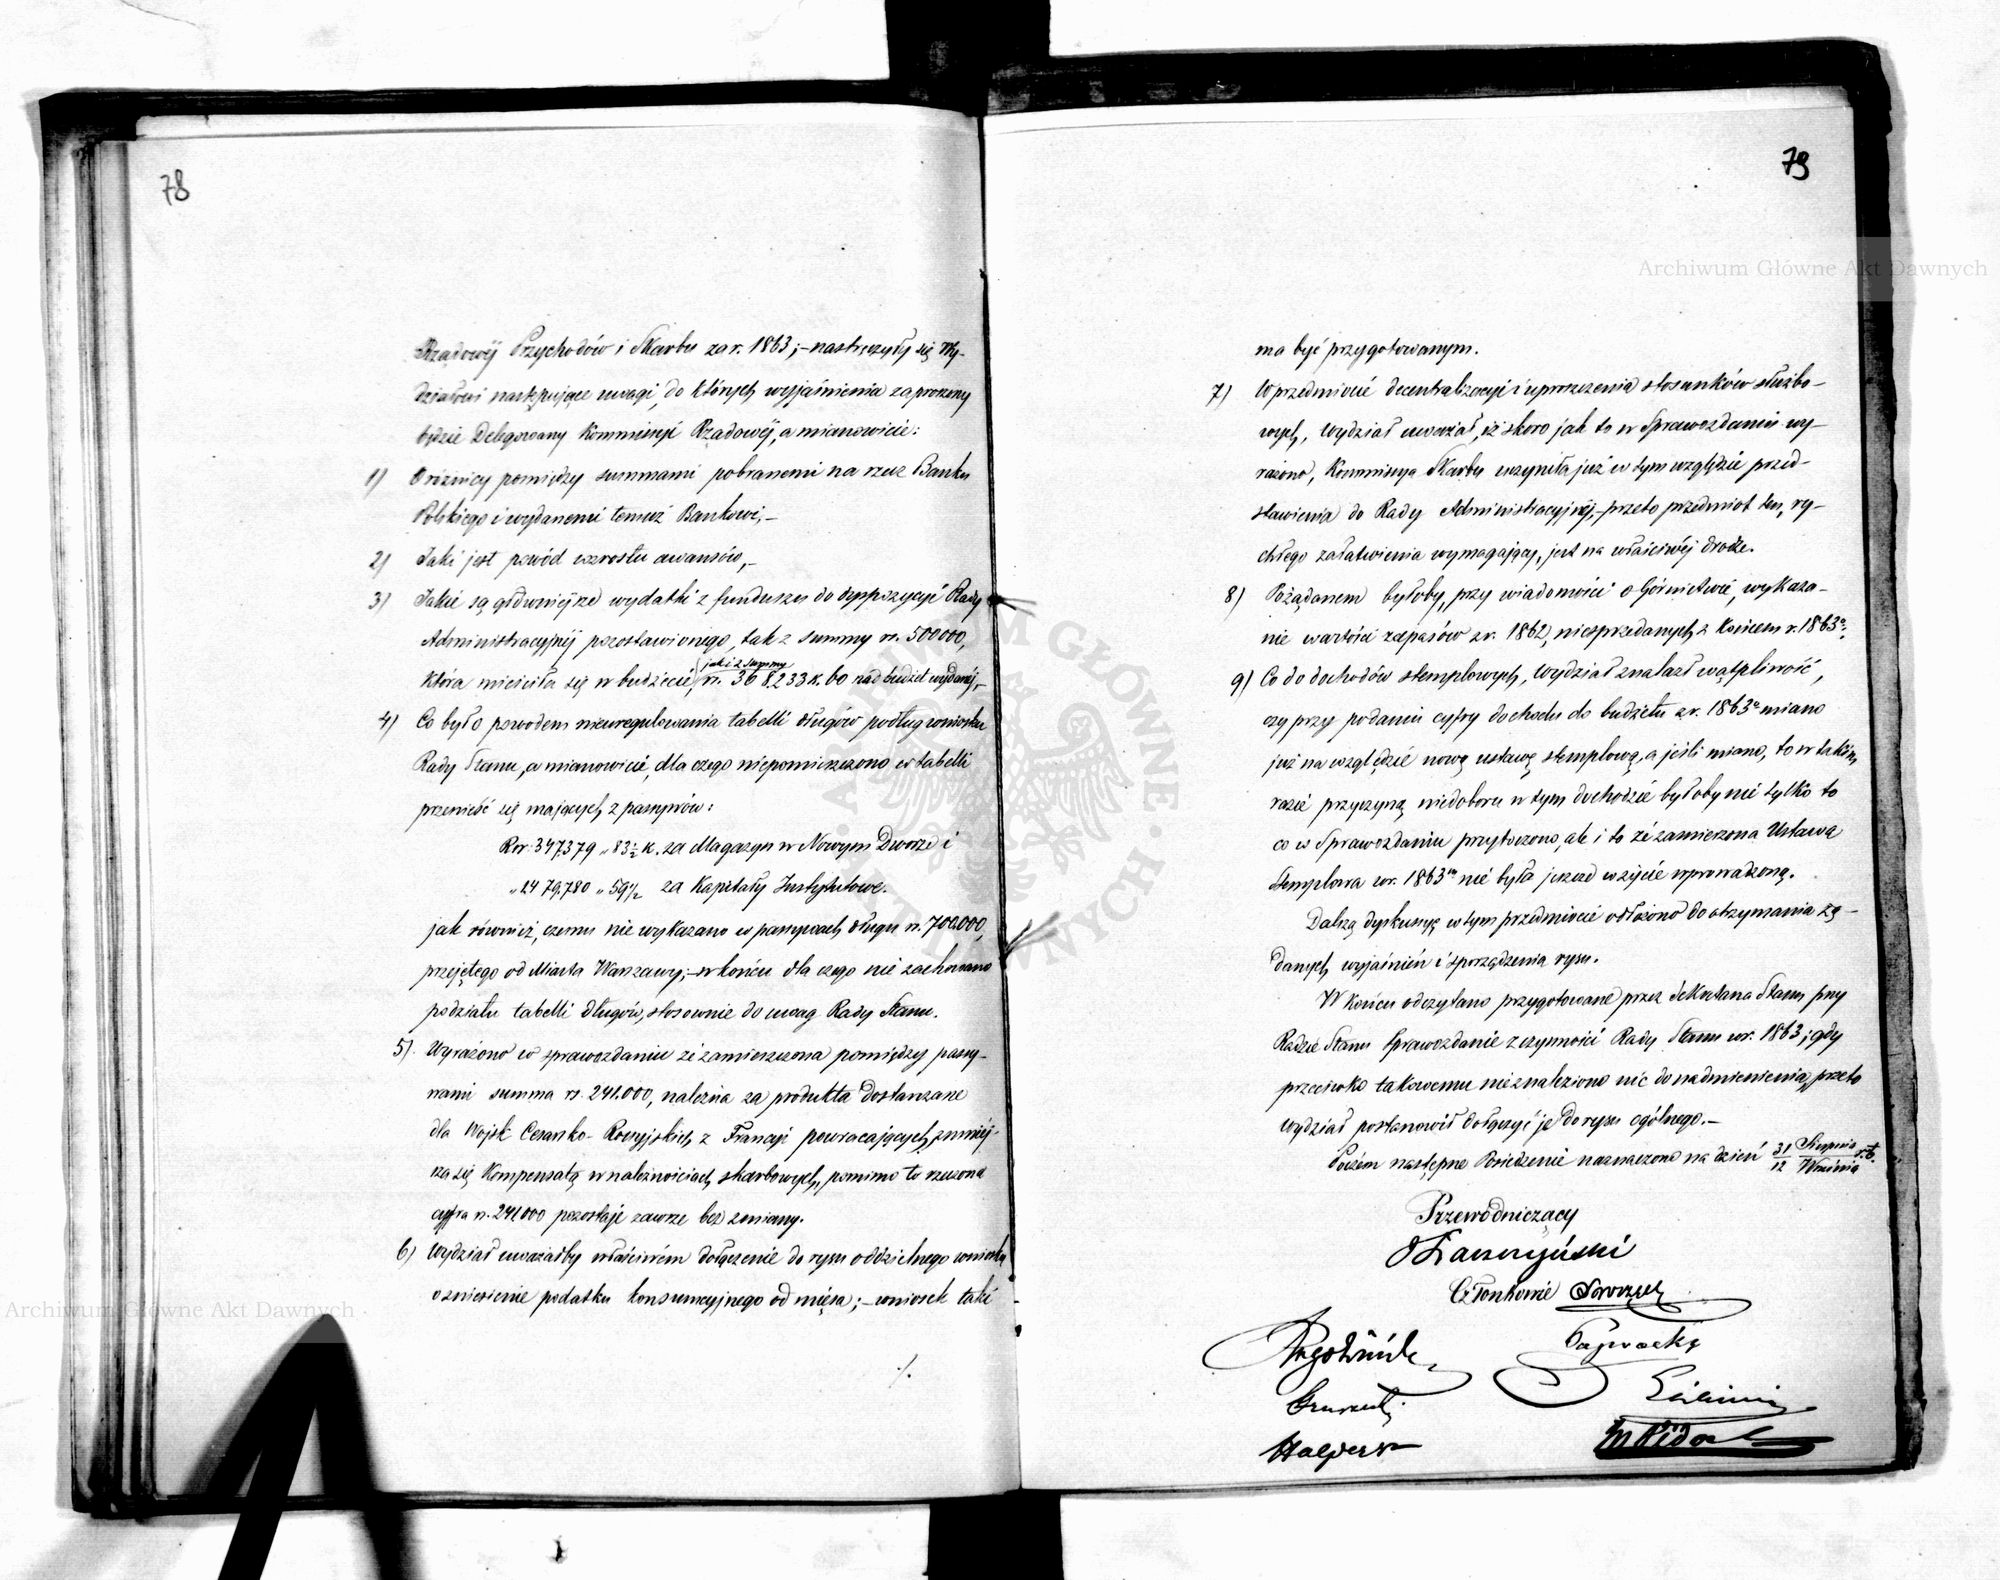 78
Rządowéj Przychodów i Skarbu za r. 1863;– nastręczyły się Wy-
działowi następujące uwagi, do których wyjaśnienia zaproszony
będzie Delegowany Kommissyi Rządowéj, a mianowicie:
1) O różnicy pomiędzy summami pobranemi na rzecz Banku
Polskiego i wydanemi temuż Bankowi,–
2) Jaki jest powód wzrostu awansów,–
3) Jakie są główniejsze wydatki z funduszu do dyspozycyi Rady
Administracyjnéj pozostawionego, tak z summy rs. 500000,
która mieściła się w budżecie, jak i z summy rs. 368,233 k. 60 nad budżet wydanéj,–
4) Co było powodem nieuregulowania tabelli długów podług wniosku
Rady Stanu, a mianowicie, dla czego niepomieszczono w tabelli
przenieść się mających z passywów:
Rsr: 347,379 „ 83½ k. za Magazyn w Nowym Dworze i
„ 2479,780 „ 59½ za Kapitały Instytutowe.
jak również, czemu nie wykazano w passywach długu rs. 700.000,
przejętego od Miasta Warszawy;– w końcu dla czego nie zachowano
podziału tabelli długów, stosownie do uwag Rady Stanu.
5) Wyrażono w sprawozdaniu że zamieszczona pomiędzy passy-
wami summa rs. 241.000, należna za produkta dostarzane
dla Wojsk Cesarsko-Rossyjskich z Francyi powracających, zmniej-
sza się kompensatą w należnościach skarbowych, pomimo to rzeczona
cyfra rs. 241000 pozostaje zawsze bez zmiany.
6) Wydział uważałby właściwém dołączenie do rysu oddzielnego wniosku
o zniesienie podatku konsumcyjnego od mięsa;– wniosek taki
./.
79
ma być przygotowanym.
7) W przedmiocie decentralizacyi i uproszczenia stosunków służbo-
wych, Wydział uważał, iż skoro jak to w Sprawozdaniu wy-
rażono, Kommissya Skarbu uczyniła już w tym względzie przed-
stawienia do Rady Administracyjnéj,– przeto przedmiot ten, ry-
chłego załatwienia wymagający, jest na właściwéj drodze.
8) Pożądanem byłoby, przy wiadomości o Górnictwie, wykaza-
nie wartości zapasów z r. 1862, niesprzedanych z końcem r. 1863º.
9) Co do dochodów stemplowych, Wydział znalazł wątpliwość,
czy przy podaniu cyfry dochodu do budżetu z r. 1863º miano
już na względzie nową ustawę stemplową, a jeśli miano, to w takim
razie przyczyną niedoboru w tym dochodzie byłoby nie tylko to
co w Sprawozdaniu przytoczono, ale i to że zamierzona Ustawa
Stemplowa w r. 1863m nie była jeszcze w życie wprowadzoną.
Dalszą dyskusyę w tym przedmiocie odłożono do otrzymania żą-
danych wyjaśnień i sporządzenia rysu.
W końcu odczytano przygotowane przez Sekretarza Stanu przy
Radzie Stanu Sprawozdanie z czynności Rady Stanu w r. 1863; gdy
przeciwko takowemu nieznaleziono nic do nadmienienia, przeto
Wydział postanowił dołączyć je do rysu ogólnego.–
Poczém następne Posiedzenie naznaczono na dzień 31/12 Sierpnia/Września r. b.
Przewodniczący
Członkowie
Archiwum Główne Akt Dawnych
Archiwum Główne Akt Dawnych